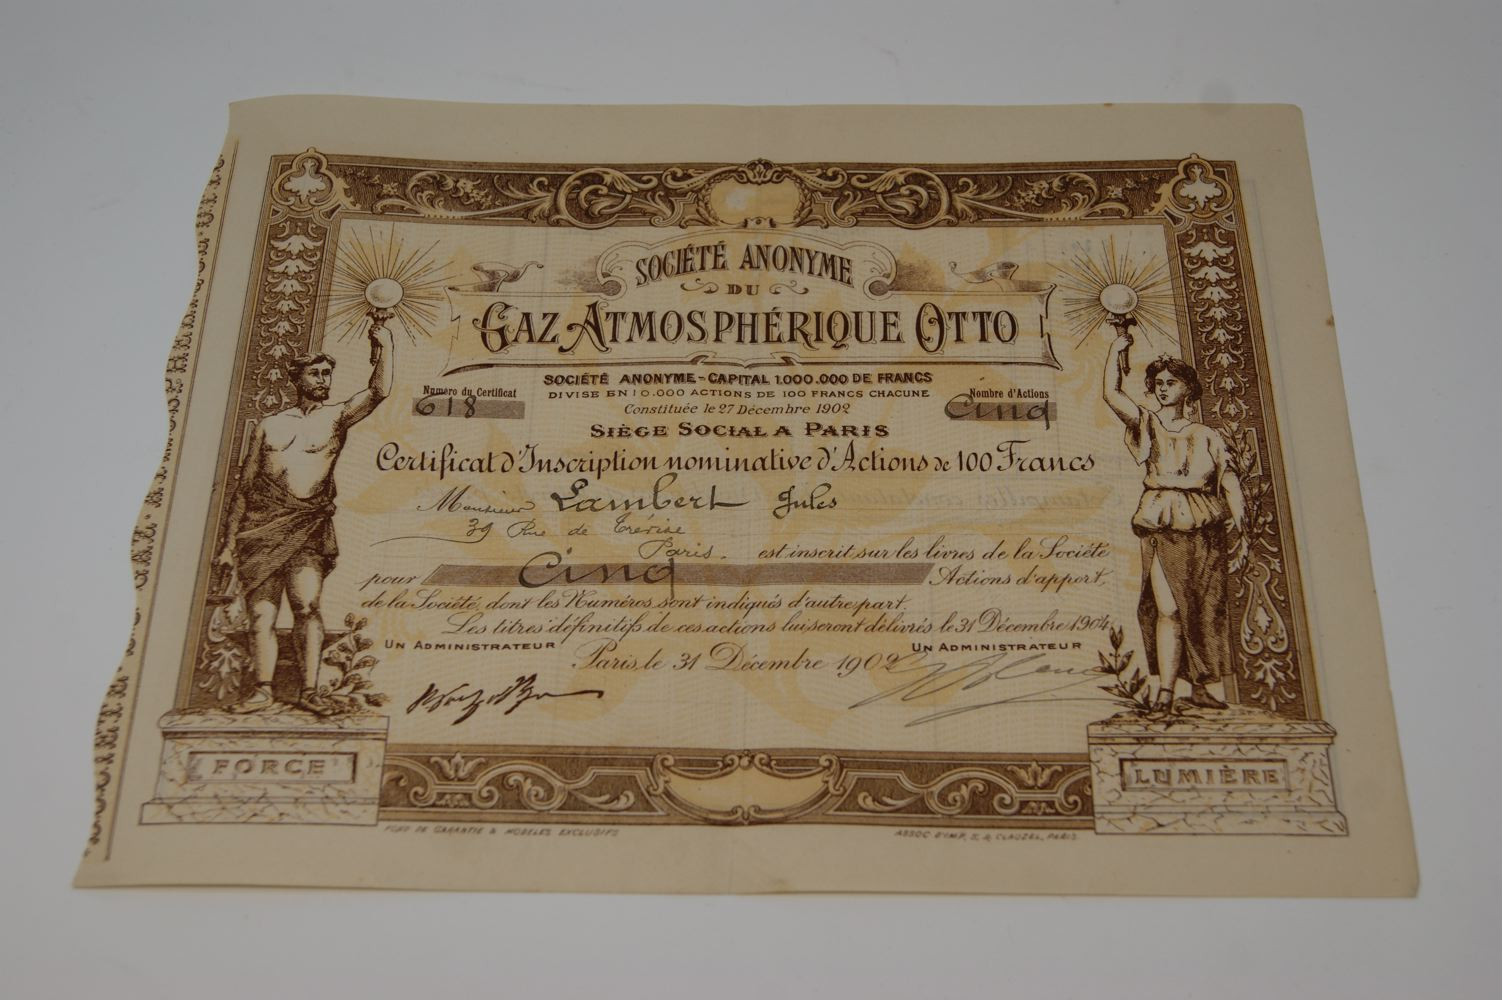 SOCIÉTÉ ANONYME
DU
GAZ ATMOSPHÉRIQUE OTTO
SOCIÉTÉ ANONYME - CAPITAL 1.000.000 DE FRANCS
DIVISE EN 10.000 ACTIONS DE 100 FRANCS CHACUNE
Numéro du Certificat
618
Nombre d'Actions
Cinq
Constituée le 27 Décembre 1902
SIÈGE SOCIAL A PARIS
Certificat d'Inscription nominative d'Actions de 100 Francs
Monsieur Lambert Jules
39 Rue de Trévise
Paris. est inscrit sur les livres de la Société
pour Cinq Actions d'apport,
de la Société, dont les Numéros sont indiqués d'autre part.
Les titres définitifs de ces actions lui seront délivrés le 31 Décembre 1904
UN ADMINISTRATEUR
Paris, le 31 Décembre 1902
UN ADMINISTRATEUR
FORCE
LUMIÈRE
FOND DE GARANTIE & MODELES EXCLUSIFS
ASSOC. D'IMP., 5, R. CLAUZEL, PARIS